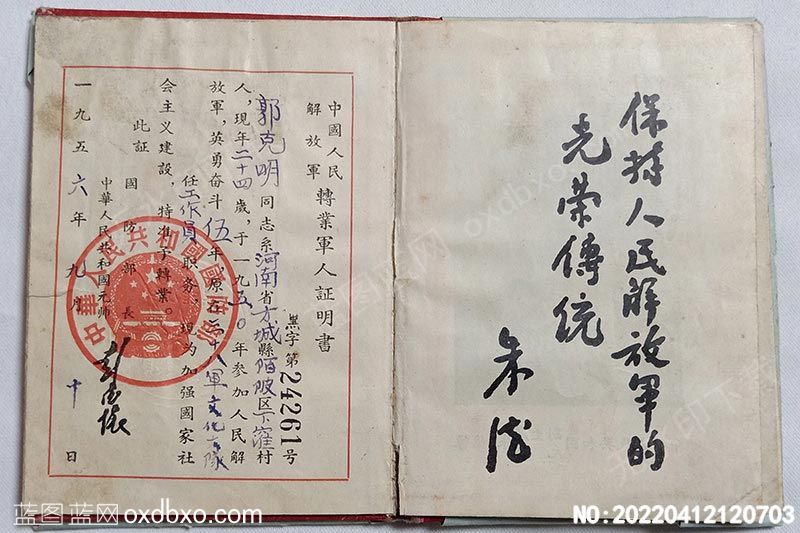 中國人民
解放軍
轉業軍人証明書
黑字第24261号
郭克明同志系河南省方城縣陌陂区下窪村
人，現年二十四歲，于一九五〇年参加人民解
放軍，英勇奋斗伍年原在三十八軍文化大隊
任工作員职务，現为加强國家社
会主义建設，特准予轉業。
此証
國防部長
中華人民共和國元帅
彭德怀
一九五六年九月十日
中華人民共和國國防部
保持人民解放軍的
光荣傳统
朱德
蓝图 蓝网 oxdbxo.com
NO:20220412120703